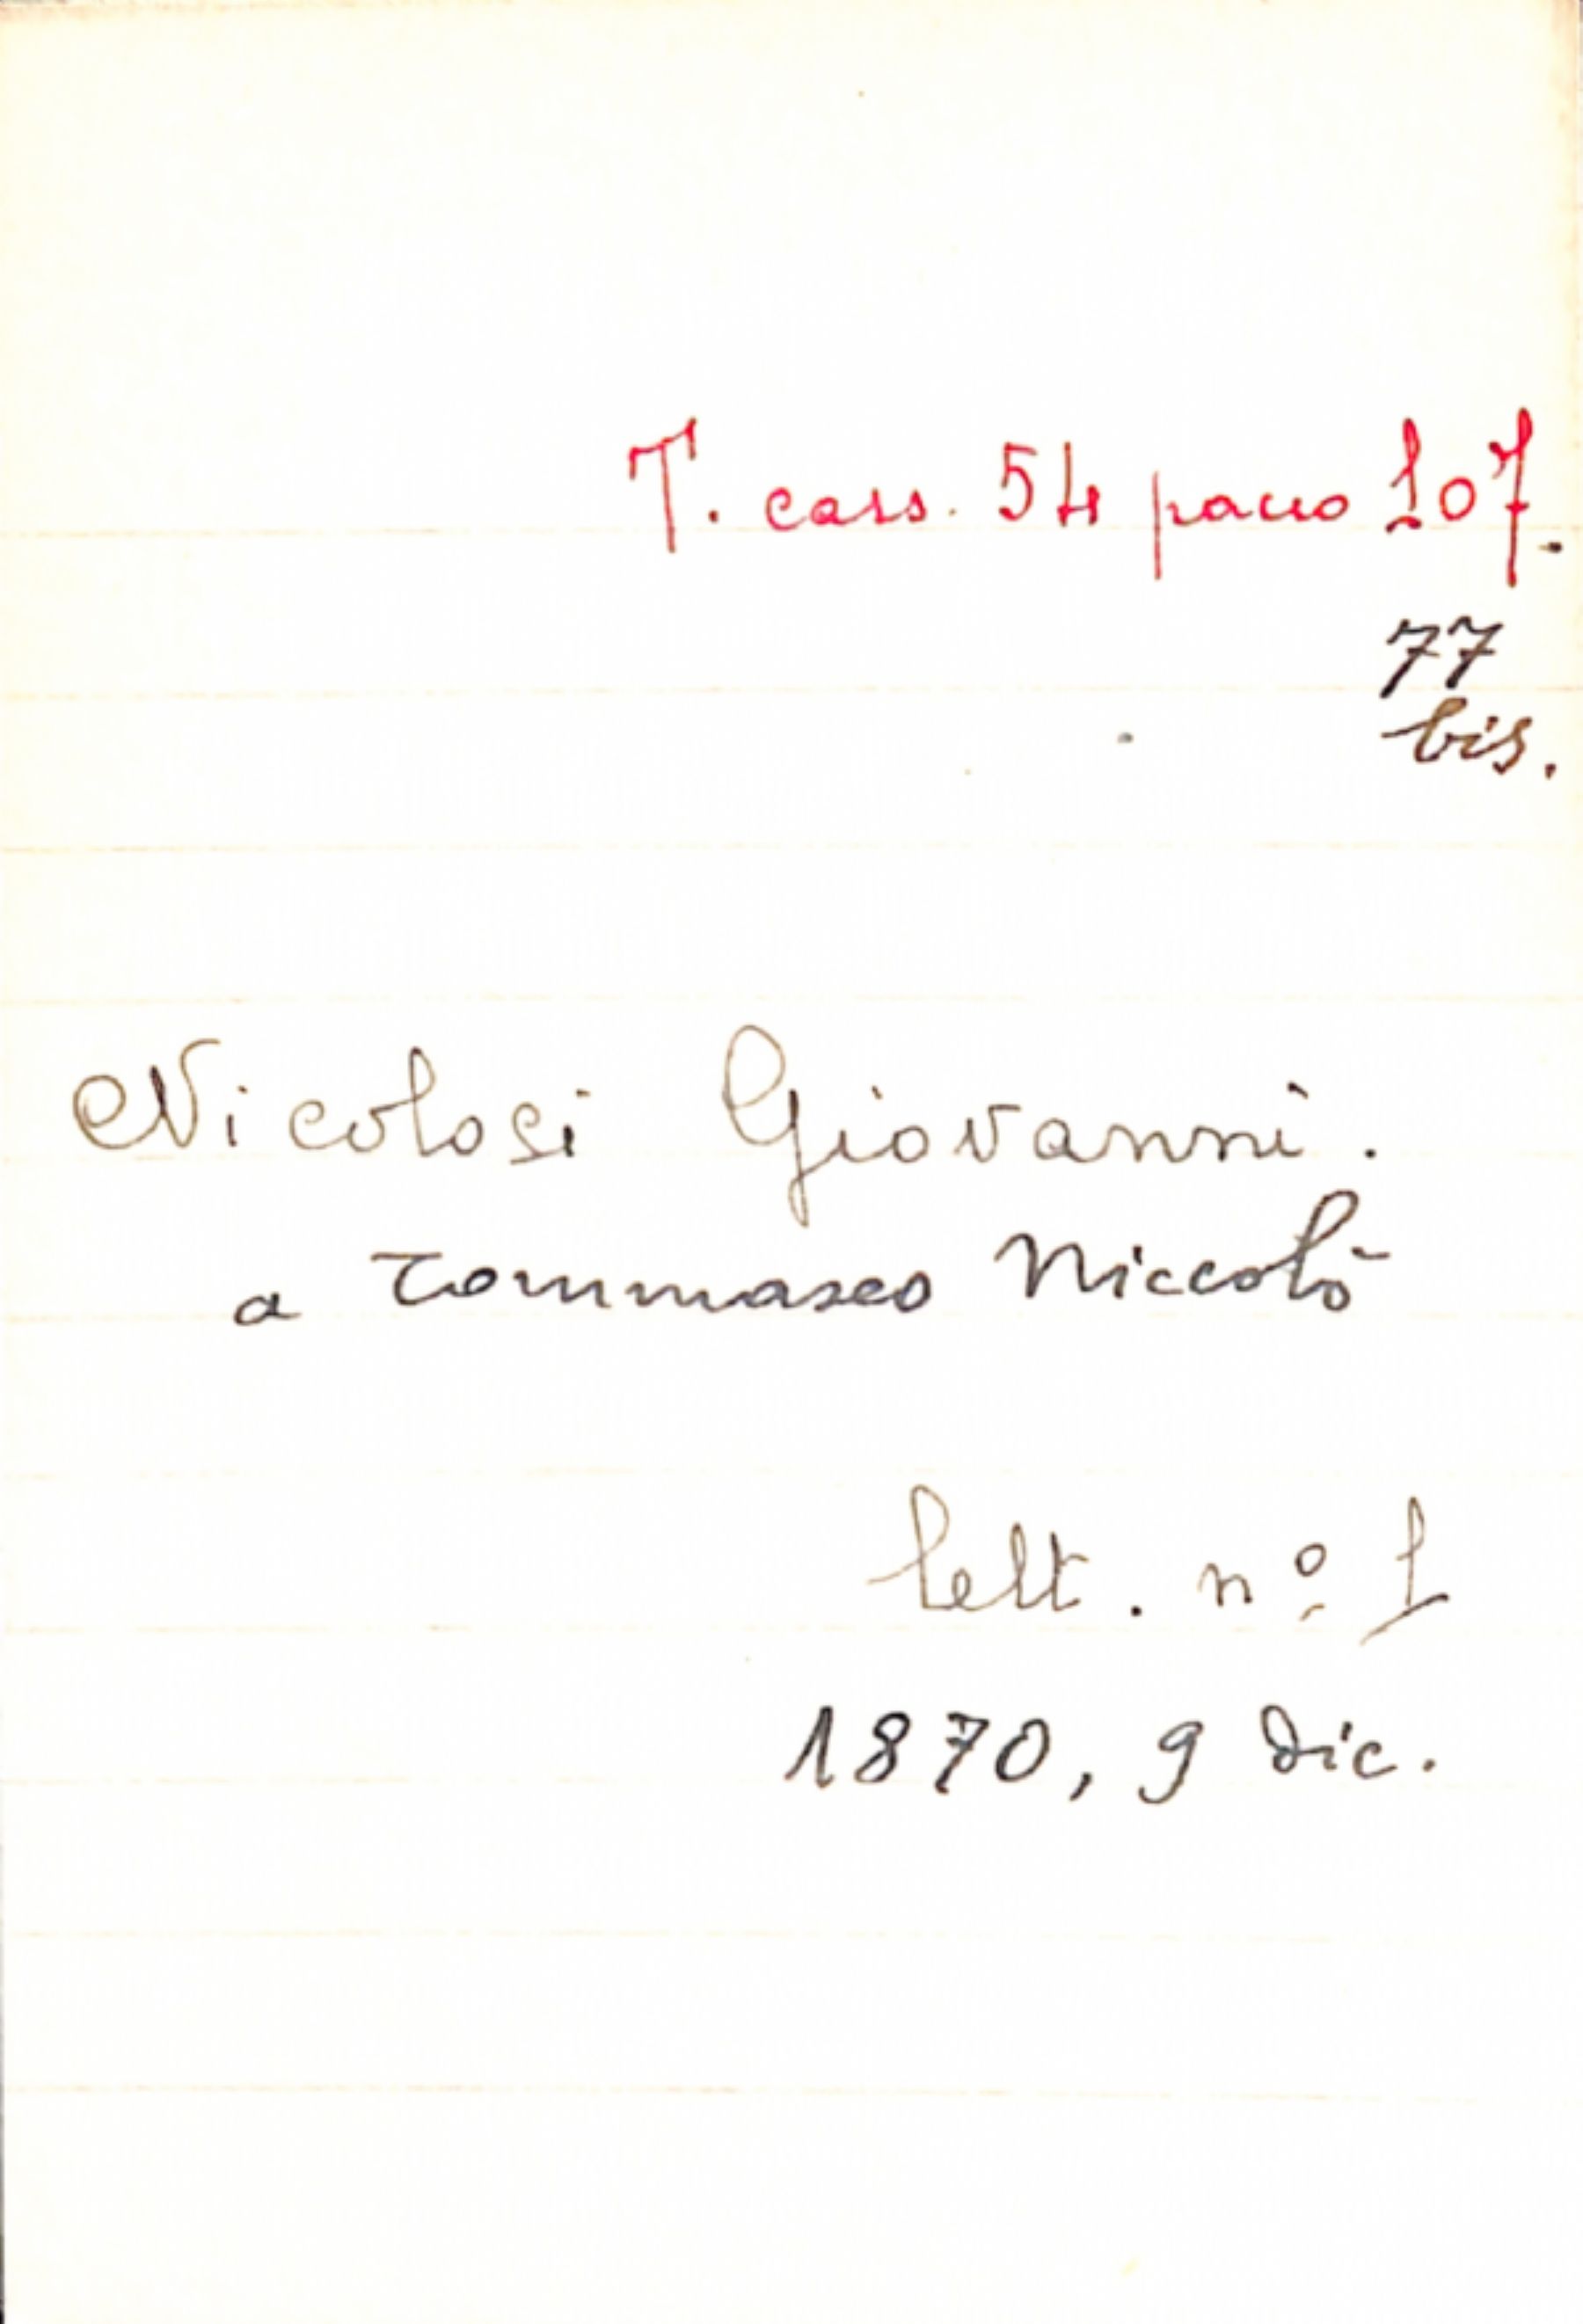 T. cass. 54 pacco 107.
77
bis.
Nicolosi Giovanni.
a Tommaseo Niccolò
lett. nº 1
1870, 9 dic.